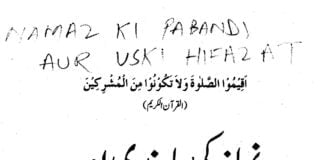 NAMAZ KI PABANDI
AUR USKI HIFAZAT
اَقِيمُوا الصَّلٰوةَ وَلَا تَكُوْنُوْا مِنَ الْمُشْرِكِيْنَ
(القرآن الکریم)
نماز کی پابندی اور